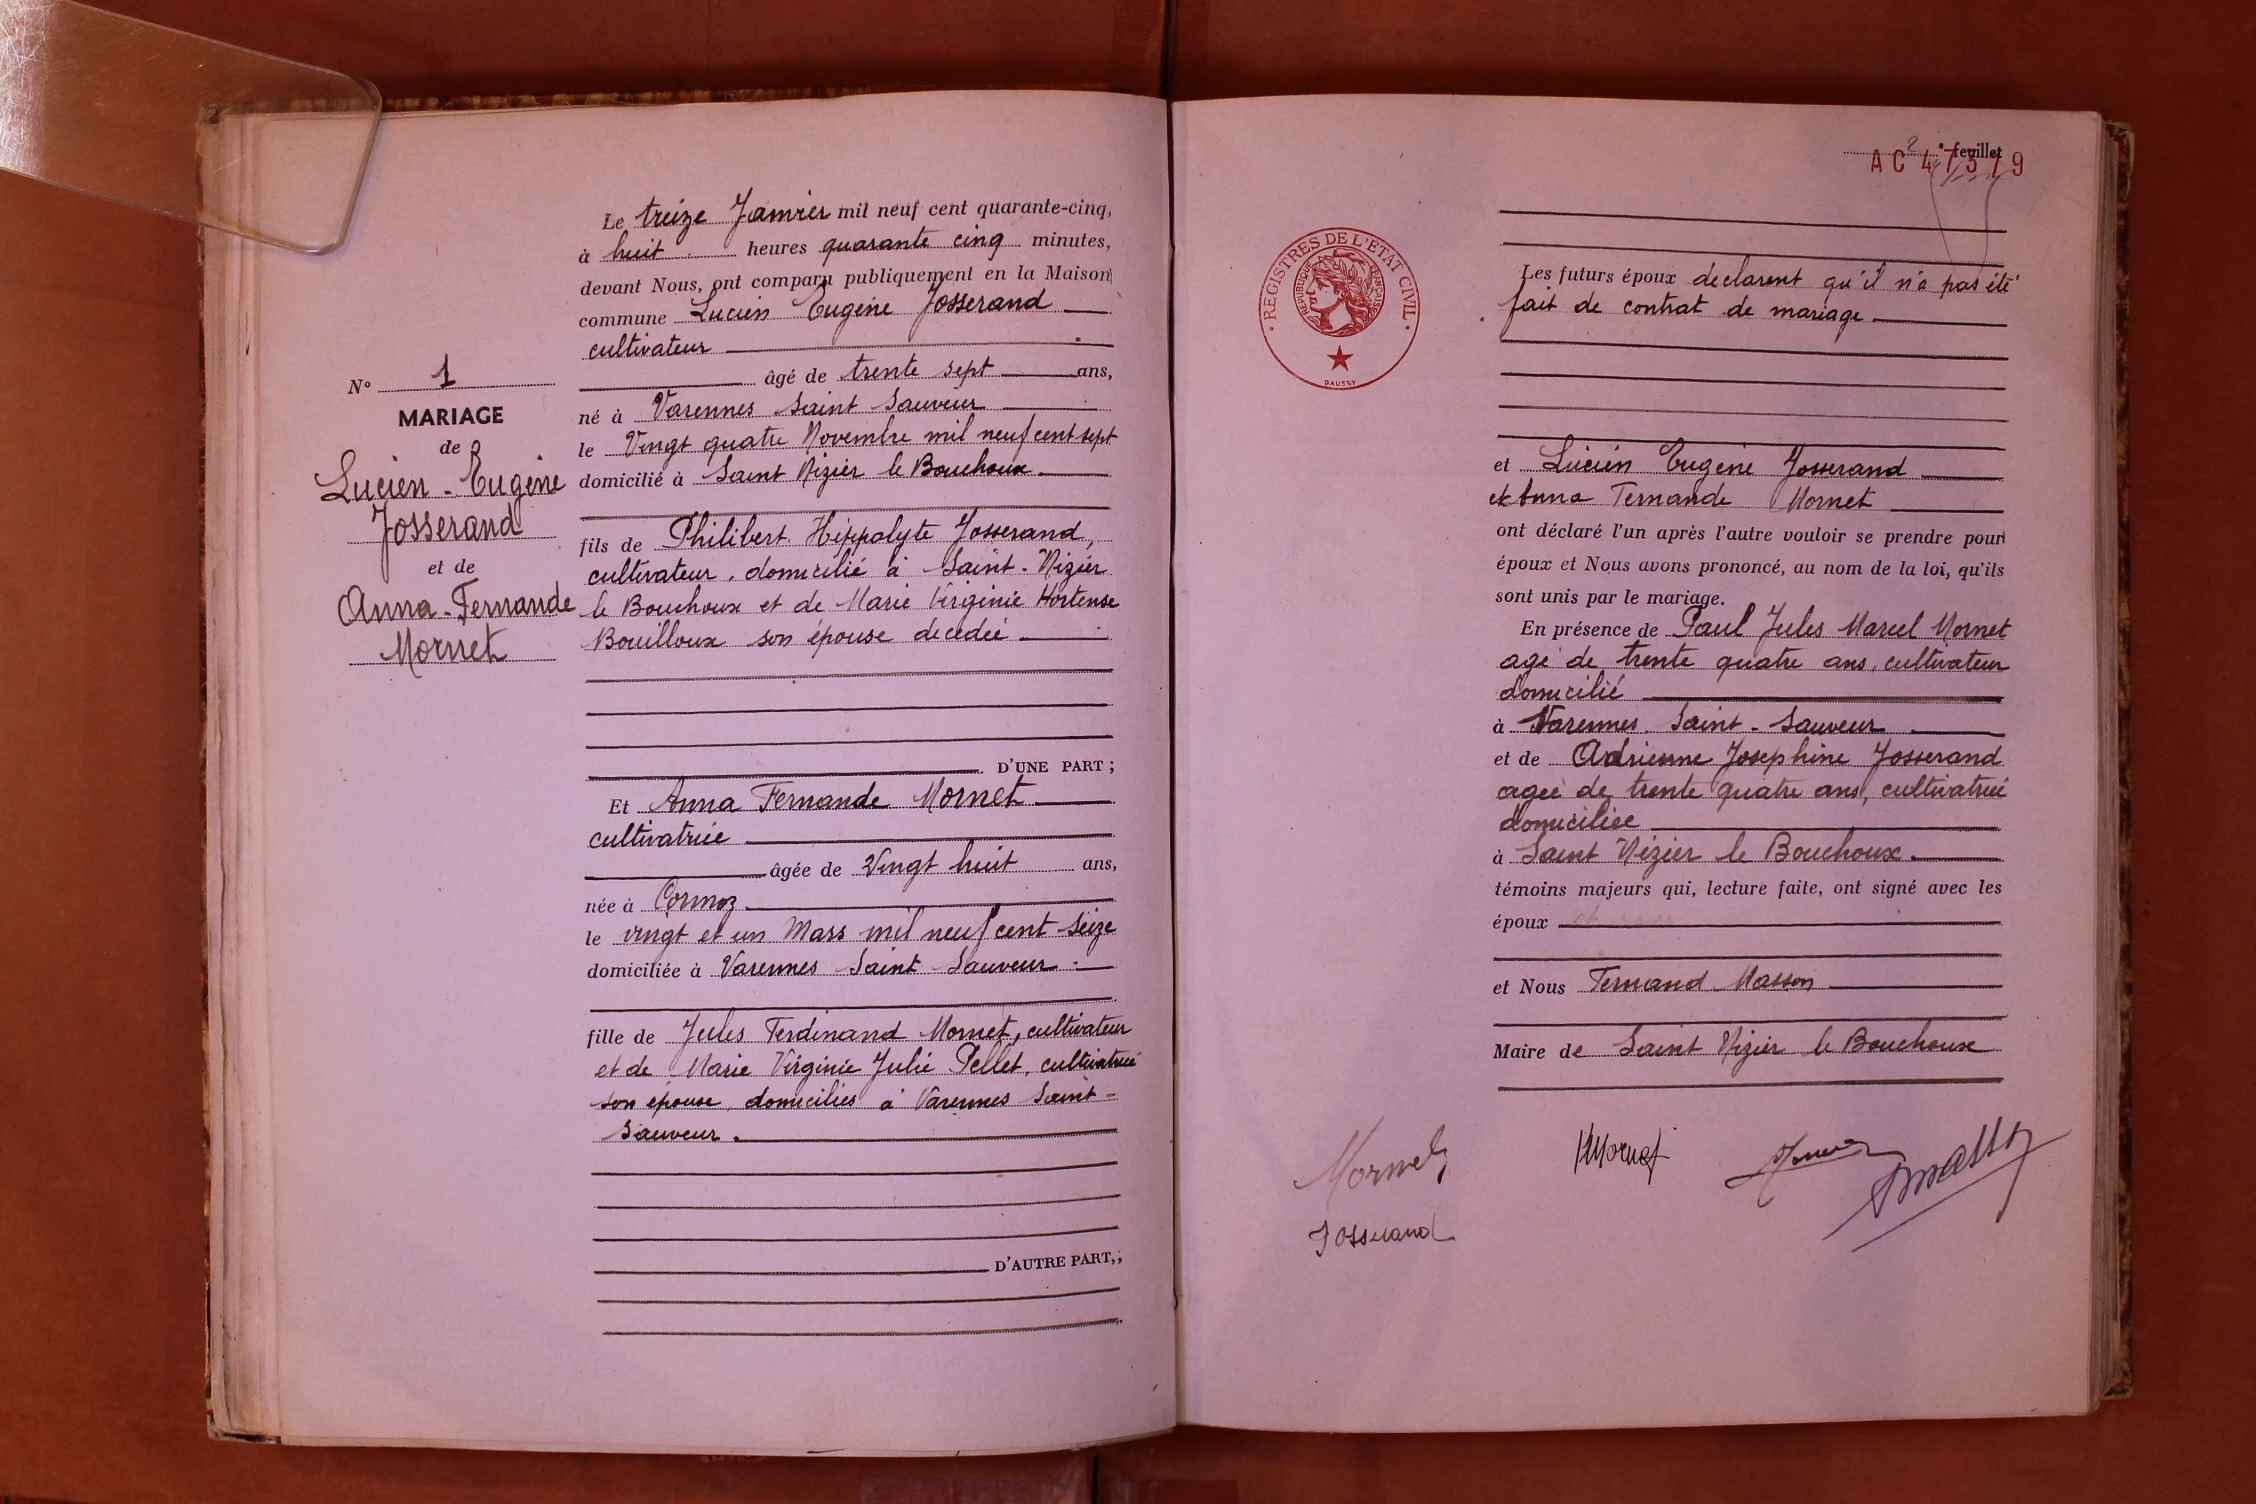 Le treize Janvier mil neuf cent quarante-cinq,
à huit heures quarante cinq minutes,
devant Nous, ont comparu publiquement en la Maison
commune Lucien Eugène Josserand
cultivateur
âgé de trente sept ans,
né à Varennes Saint Sauveur
le Vingt quatre Novembre mil neuf cent sept
domicilié à Saint Nizier le Bouchoux
N° 1
MARIAGE
de
Lucien - Eugène
Josserand
et de
Anna - Fernande
Mornet
fils de Philibert Hippolyte Josserand,
cultivateur, domicilié à Saint-Nizier
le Bouchoux et de Marie Virginie Hortense
Bouilloux son épouse décédée
D'UNE PART ;
Et Anna Fernande Mornet
cultivatrice
âgée de Vingt huit ans,
née à Cormoz
le vingt et un Mars mil neuf cent seize
domiciliée à Varennes Saint Sauveur
fille de Jules Ferdinand Mornet, cultivateur
et de Marie Virginie Julie Pellet, cultivatrice
son épouse, domiciliés à Varennes Saint-
Sauveur.
D'AUTRE PART,;
2e feuillet
AC 47379
REGISTRES DE L'ETAT CIVIL
REPUBLIQUE FRANÇAISE
DAUSSY
Les futurs époux déclarent qu'il n'a pas été
fait de contrat de mariage
et Lucien Eugène Josserand
et Anna Fernande Mornet
ont déclaré l'un après l'autre vouloir se prendre pour
époux et Nous avons prononcé, au nom de la loi, qu'ils
sont unis par le mariage.
En présence de Paul Jules Marcel Mornet
agé de trente quatre ans, cultivateur
domicilié
à Varennes Saint-Sauveur
et de Adrienne Josephine Josserand
agée de trente quatre ans, cultivatrice
domiciliée
à Saint Nizier le Bouchoux.
témoins majeurs qui, lecture faite, ont signé avec les
époux
et Nous Fernand Masson
Maire de Saint Nizier le Bouchoux
Mornet
Mornet
Masson
Josserand